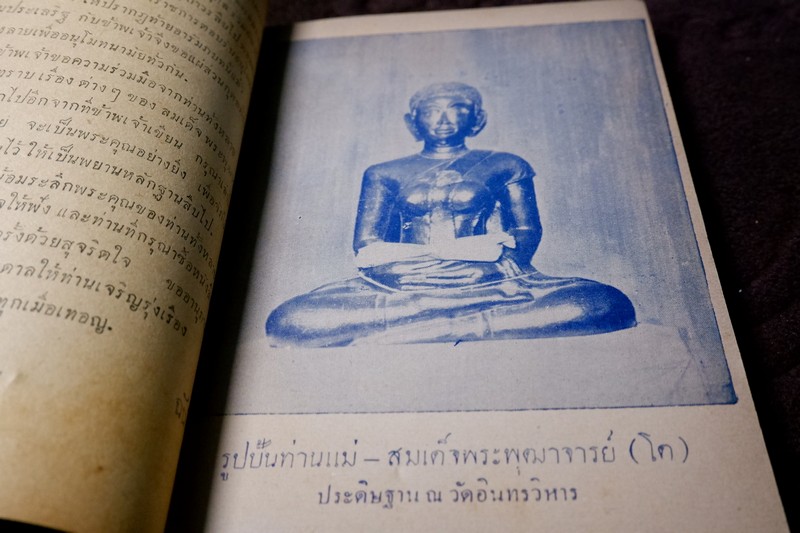 กับข้าพเจ้าจึงขอ
ลายเพื่ออนุโมทนามัยทั่วกัน.
ข้าพเจ้าขอความร่วมมือจากท่านทั้งหลาย
ทราบ เรื่อง ต่าง ๆ ของ สมเด็จ
ไปอีกจากที่ข้าพเจ้าเขียน กรุณา
จะเป็นพระคุณอย่างยิ่ง เพื่อ
ไว้ ให้เป็นพยานหลักฐานสืบไป.
น้อมระลึกพระคุณของท่านทั้งหลาย
ให้ฟัง และท่านที่กรุณาซื้อหนังสือ
ครั้งด้วยสุจริตใจ ขออานุ
ดาลให้ท่านเจริญรุ่งเรือง
ทุกเมื่อเทอญ.
รูปปั้นท่านแม่ – สมเด็จพระพุฒาจารย์ (โต)
ประดิษฐาน ณ วัดอินทรวิหาร